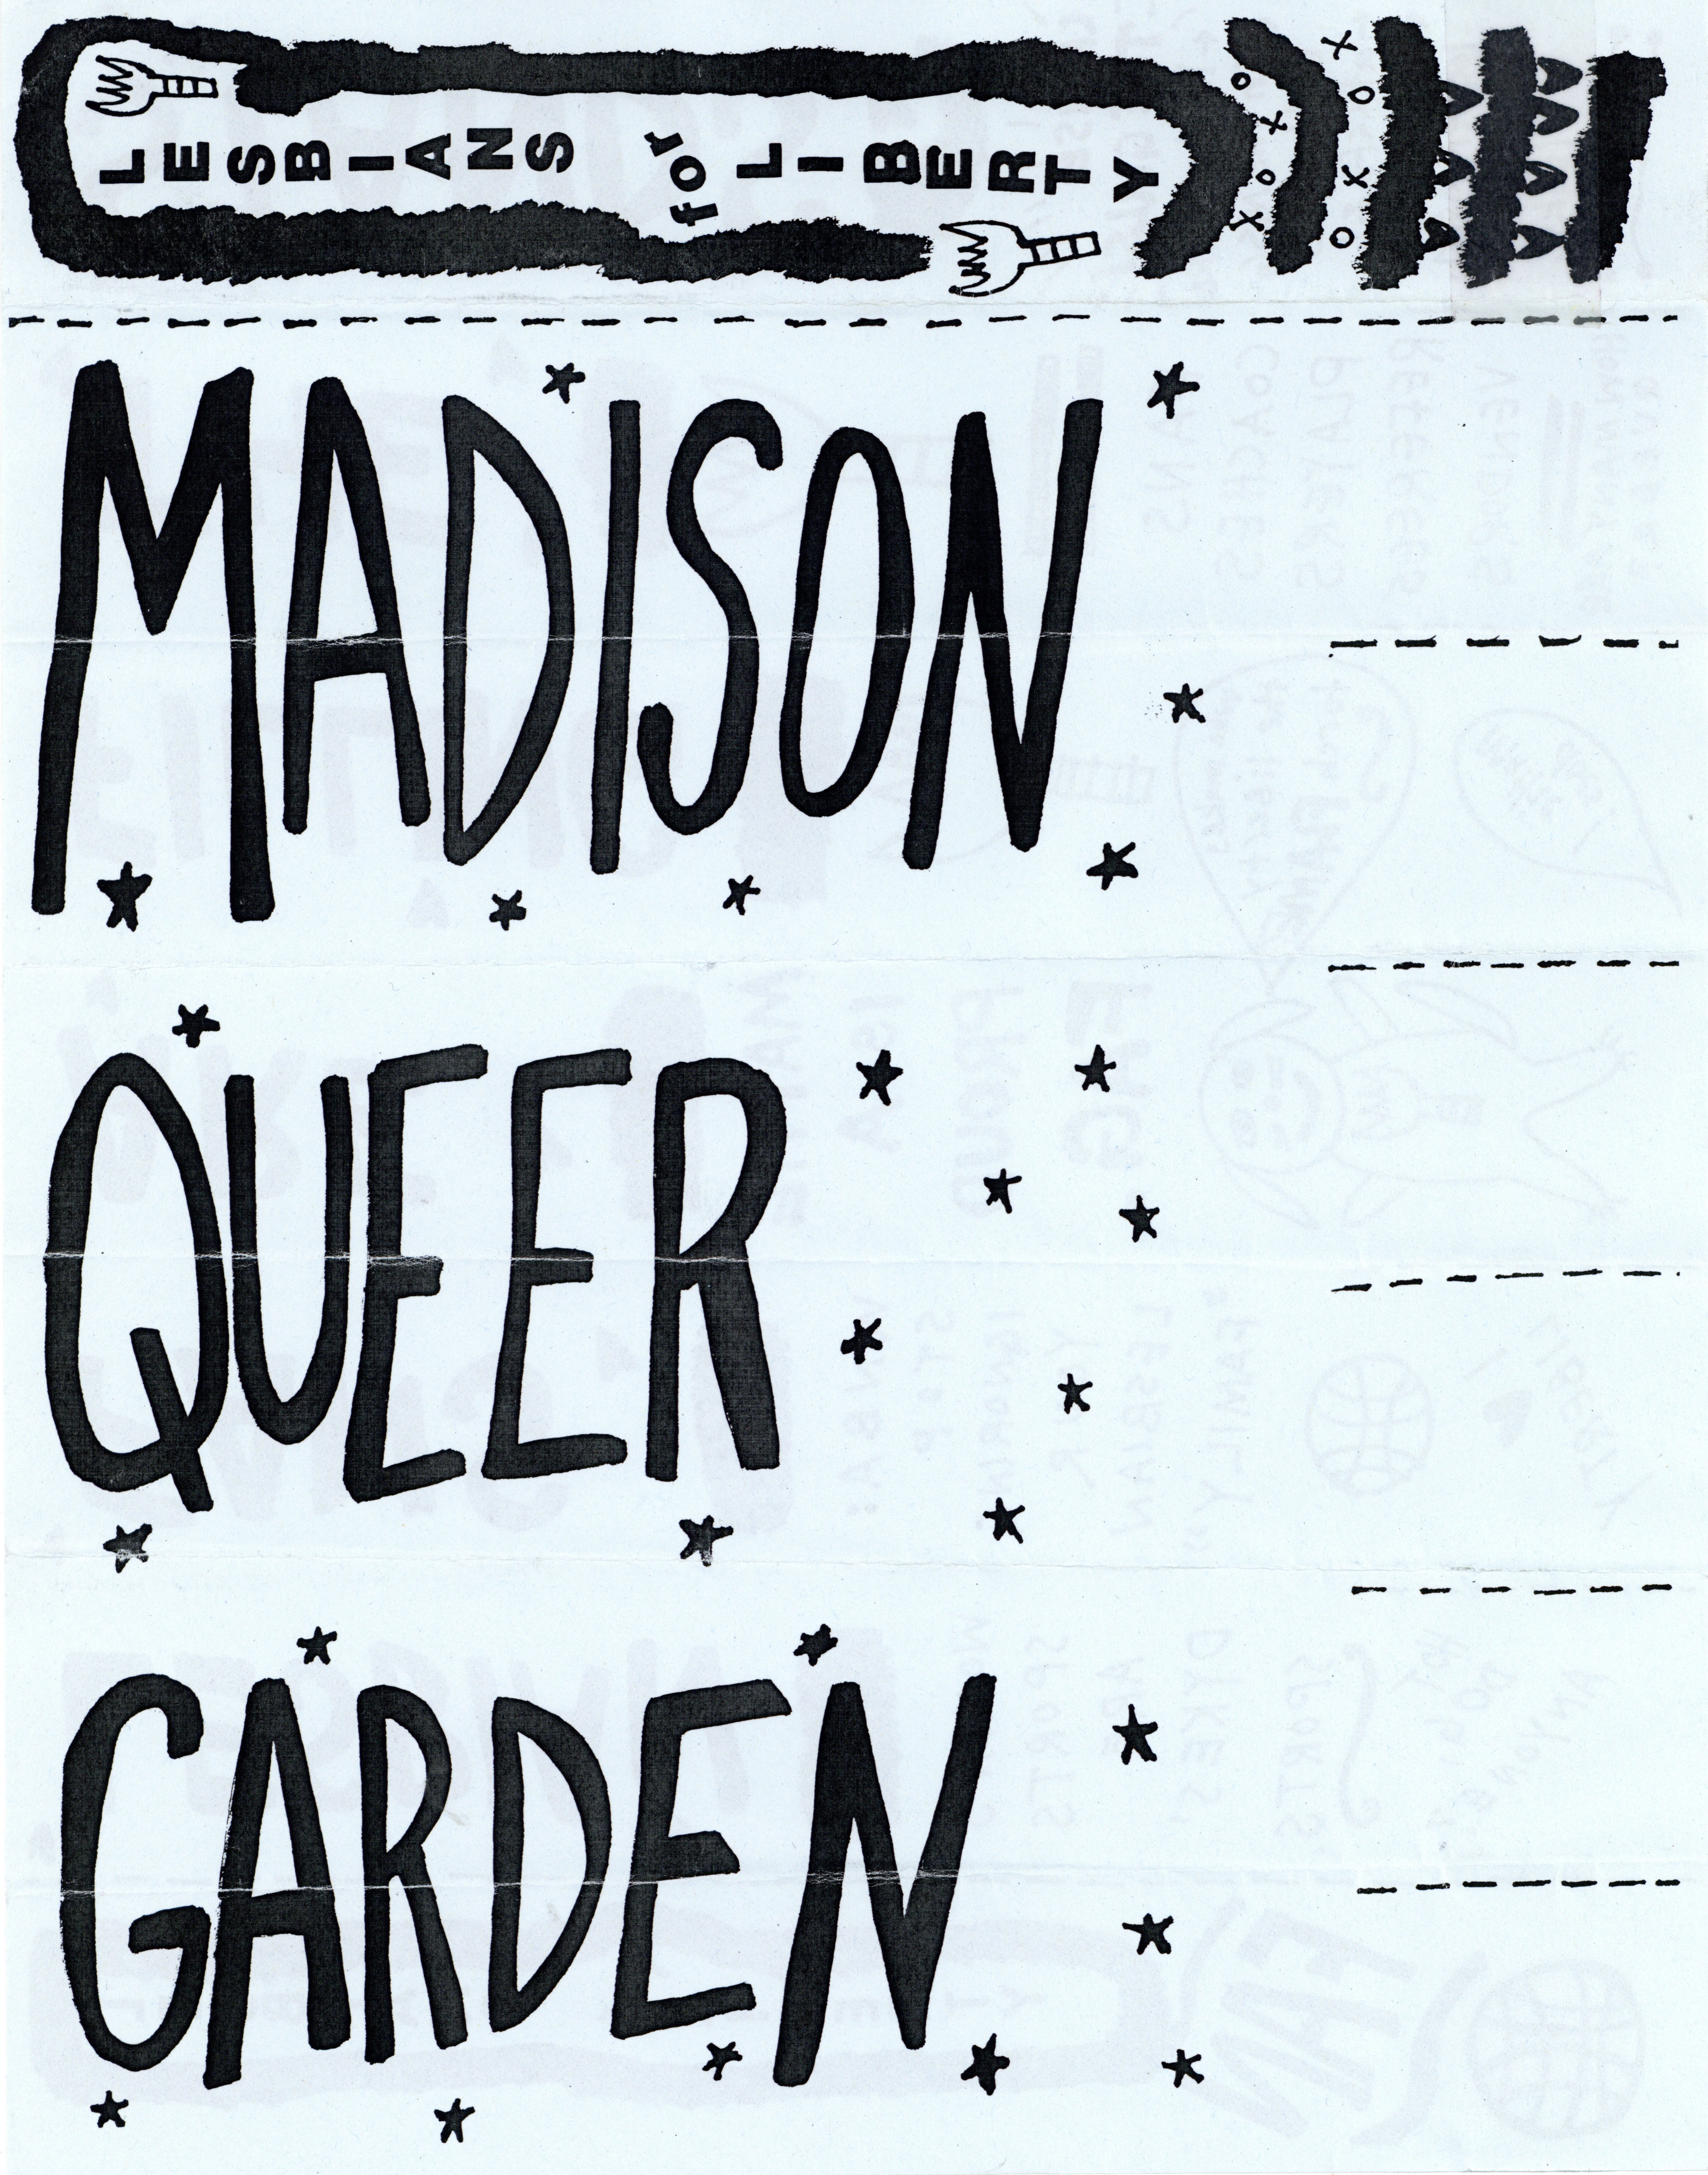 LESBIANS for LIBERTY
MADISON
QUEER
GARDEN